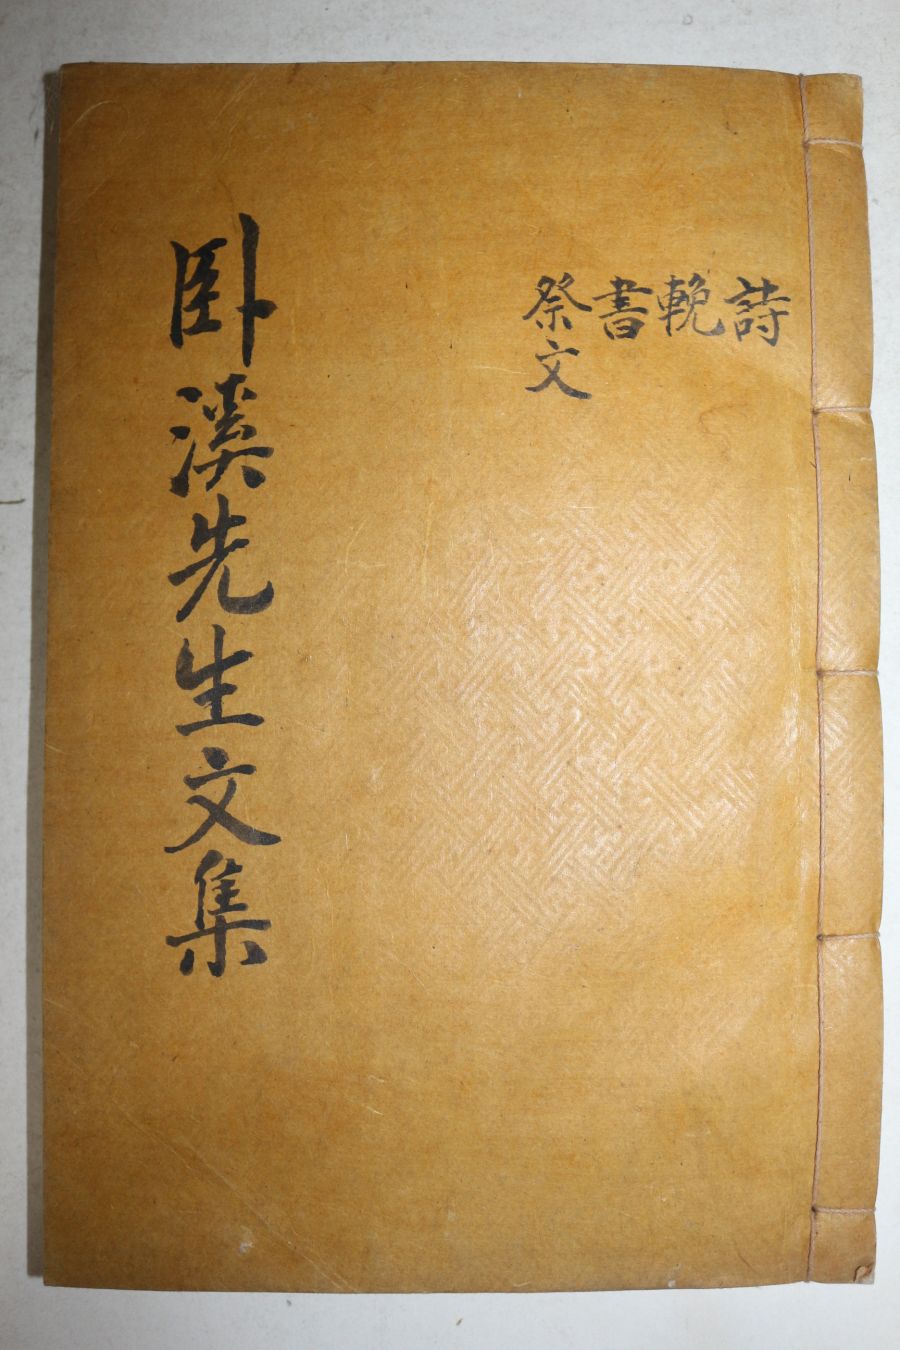 詩
輓
書
祭文
卧溪先生文集